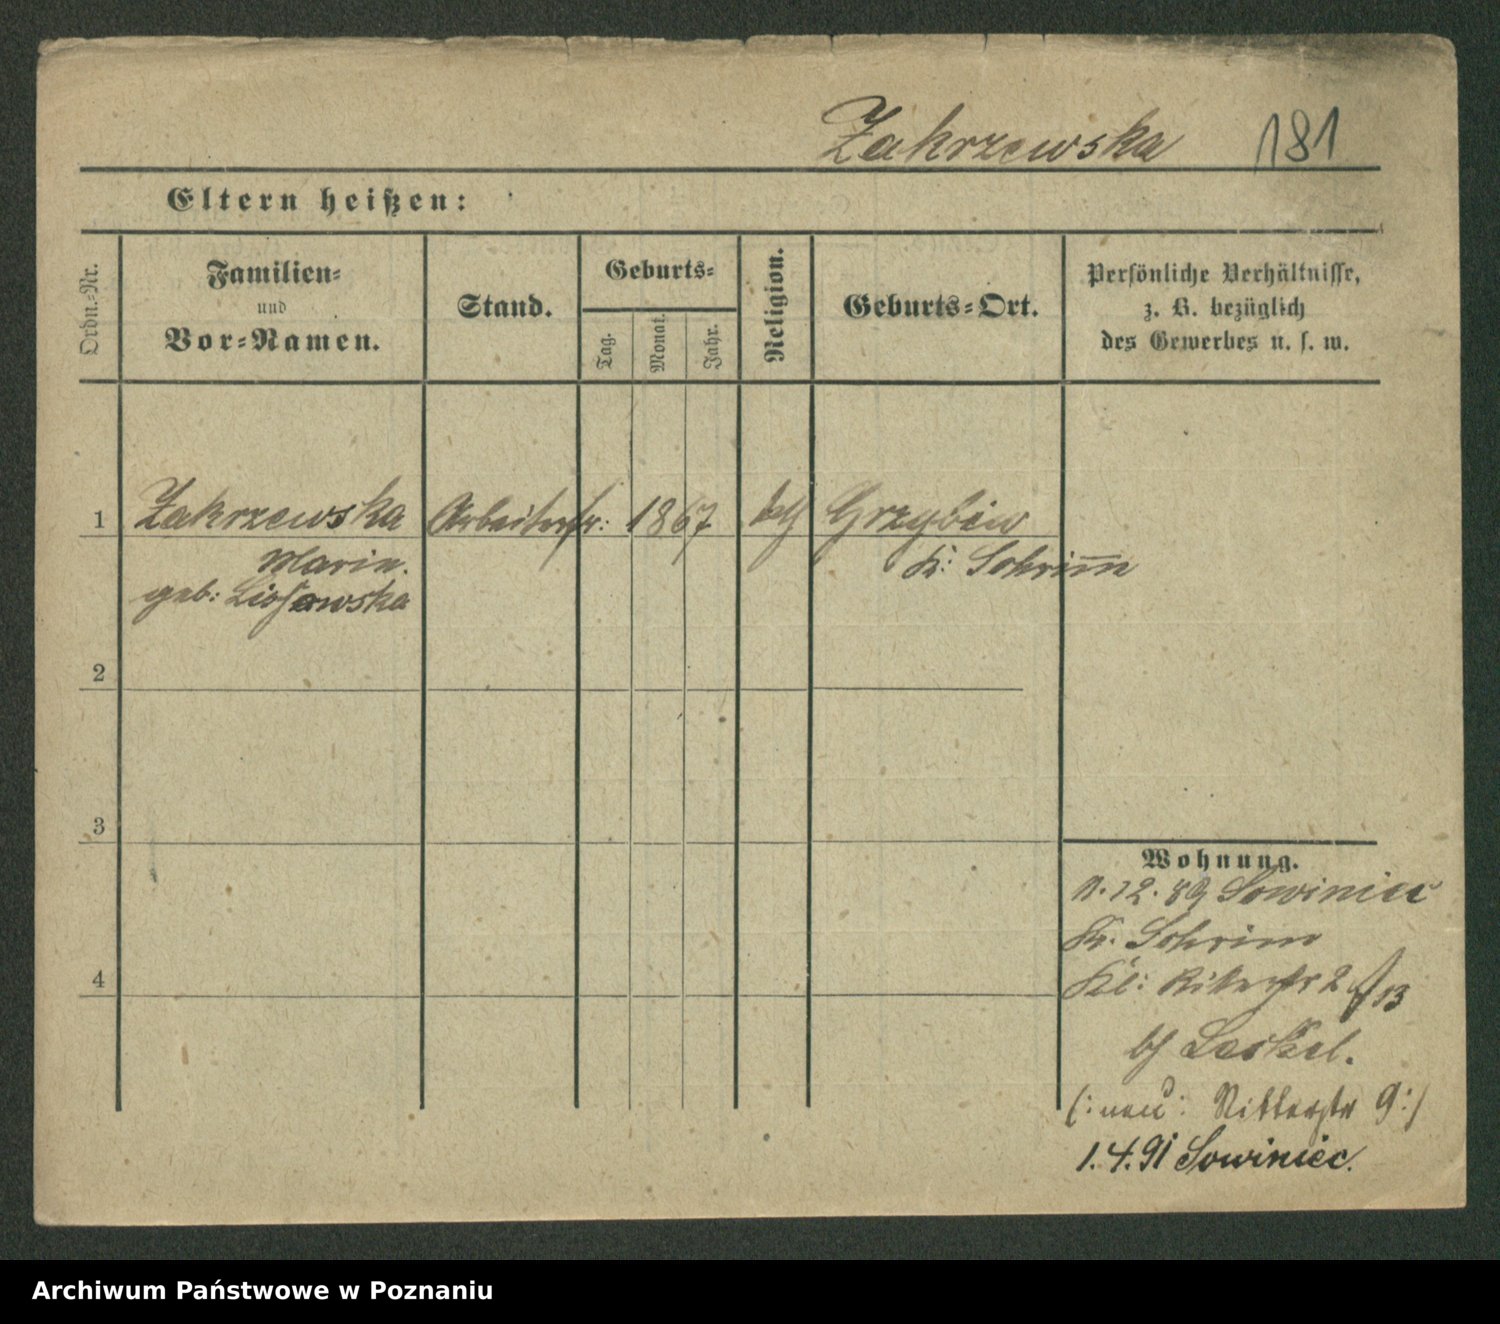 Zakrzewska 181
Eltern heißen:
Ordn.-Nr.
Familien-
und
Vor-Namen.
Stand.
Geburts-
Tag.
Monat.
Jahr.
Religion.
Geburts-Ort.
Persönliche Verhältnisse,
z. B. bezüglich
des Gewerbes u. s. w.
1 Zakrzewska Arbeiterfr: 1867 kth Grzybiew
Marie. Kr: Schrimm
geb:
2
3
4
Wohnung.
12. 89 Sowiniec
Kr. Schrim
Kl: Ritterstr 2 / 13
b/
(: neu: Ritterstr 9 :)
1. 4. 91 Sowiniec.
Archiwum Państwowe w Poznaniu